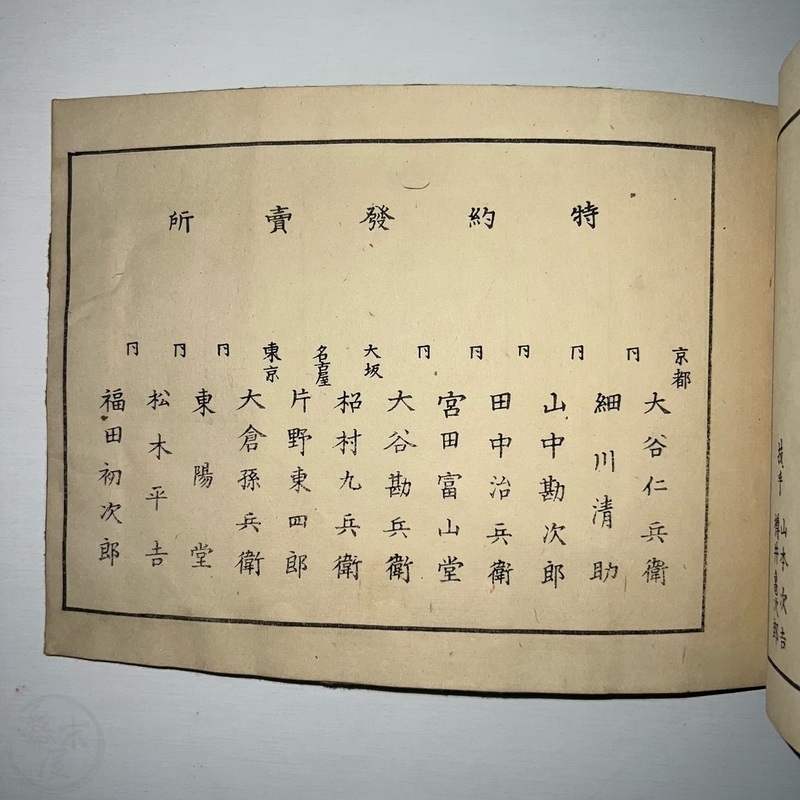 特約發賣所
京都 大谷仁兵衛
同 細川清助
同 山中勘次郎
同 田中治兵衛
同 宮田富山堂
同 大谷勘兵衛
大坂 柗村九兵衛
名古屋 片野東四郎
東京 大倉孫兵衛
同 東陽堂
同 松木平吉
同 福田初次郎
山本次吉